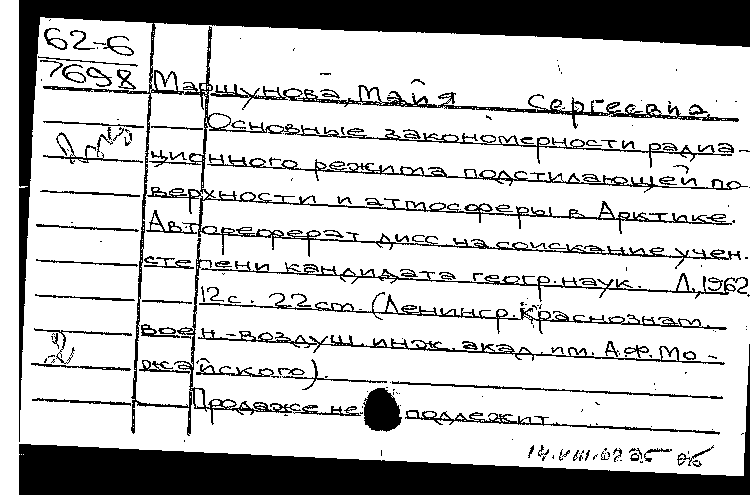 62-6
7698 Маршунова, Майя Сергеевна
Основные закономерности радиа-
ционного режима подстилающей по
верхности и атмосферы в Арктике.
Автореферат дисс на соискание учен.
степени кандидата геогр. наук. Л, 1962
12с. 22см. (Ленингр. Краснознам.
2 воен.-воздуш. инж. акад. им. А.Ф. Мо-
жайского).
Продаже не подлежит.
14.VIII.62